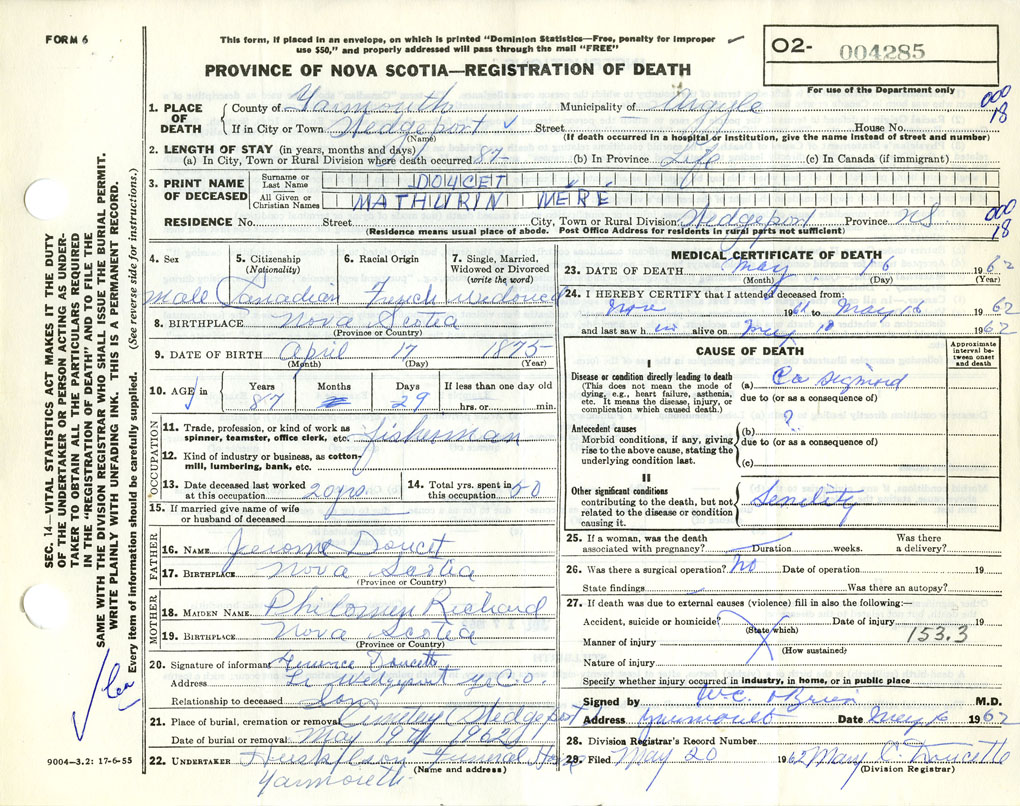 FORM 6
This form, if placed in an envelope, on which is printed "Dominion Statistics—Free, penalty for improper
use $50," and properly addressed will pass through the mail "FREE"
PROVINCE OF NOVA SCOTIA—REGISTRATION OF DEATH
O2- 004285
For use of the Department only
000
18
1. PLACE OF DEATH
County of Yarmouth Municipality of Argyle
If in City or Town Wedgeport Street House No.
(Name) (If death occurred in a hospital or institution, give the name instead of street and number)
2. LENGTH OF STAY (in years, months and days)
(a) In City, Town or Rural Division where death occurred 87 (b) In Province Life (c) In Canada (if immigrant)
3. PRINT NAME OF DECEASED
Surname or Last Name DOUCET
All Given or Christian Names MATHURIN MÉRÉ
RESIDENCE No. Street City, Town or Rural Division Wedgeport Province NS
(Residence means usual place of abode. Post Office Address for residents in rural parts not sufficient)
000
18
4. Sex 5. Citizenship (Nationality) 6. Racial Origin 7. Single, Married, Widowed or Divorced (write the word)
Male Canadian French widowed
8. BIRTHPLACE Nova Scotia
(Province or Country)
9. DATE OF BIRTH April 17 1875
(Month) (Day) (Year)
10. AGE in Years Months Days If less than one day old
87 29 hrs. or min.
OCCUPATION
11. Trade, profession, or kind of work as spinner, teamster, office clerk, etc. fisherman
12. Kind of industry or business, as cotton-mill, lumbering, bank, etc.
13. Date deceased last worked at this occupation 20 yrs. 14. Total yrs. spent in this occupation 50
15. If married give name of wife or husband of deceased
FATHER
16. NAME Jerome Doucet
17. BIRTHPLACE Nova Scotia
(Province or Country)
MOTHER
18. MAIDEN NAME Philomen Richard
19. BIRTHPLACE Nova Scotia
(Province or Country)
20. Signature of informant Terence Doucette
Address Lr Wedgeport Yr. C.O.
Relationship to deceased Son
21. Place of burial, cremation or removal Cemetery Wedgeport
Date of burial or removal May 19th 1962
22. UNDERTAKER Funeral Home
(Name and address)
Yarmouth
MEDICAL CERTIFICATE OF DEATH
23. DATE OF DEATH May 16 1962
(Month) (Day) (Year)
24. I HEREBY CERTIFY that I attended deceased from:
Nov 1961 to May 16 1962
and last saw him alive on May 18 1962
CAUSE OF DEATH
Approximate interval between onset and death
I
Disease or condition directly leading to death
(This does not mean the mode of dying, e.g., heart failure, asthenia, etc. It means the disease, injury, or complication which caused death.)
(a) Ca sigmoid
due to (or as a consequence of)
Antecedent causes
Morbid conditions, if any, giving rise to the above cause, stating the underlying condition last.
(b) ?
due to (or as a consequence of)
(c)
II
Other significant conditions
contributing to the death, but not related to the disease or condition causing it.
Senility
25. If a woman, was the death associated with pregnancy? Duration weeks. Was there a delivery?
26. Was there a surgical operation? No Date of operation 19
State findings Was there an autopsy?
27. If death was due to external causes (violence) fill in also the following:—
Accident, suicide or homicide? Date of injury 19
(State which)
Manner of injury 153.3
(How sustained)
Nature of injury
Specify whether injury occurred in industry, in home, or in public place
Signed by W.C. O'Brien M.D.
Address Yarmouth Date May 16 1962
28. Division Registrar's Record Number
29. Filed May 20 1962 Mary C. Doucette
(Division Registrar)
SEC. 14—VITAL STATISTICS ACT MAKES IT THE DUTY
OF THE UNDERTAKER OR PERSON ACTING AS UNDER-
TAKER TO OBTAIN ALL THE PARTICULARS REQUIRED
IN THE "REGISTRATION OF DEATH" AND TO FILE THE
SAME WITH THE DIVISION REGISTRAR WHO SHALL ISSUE THE BURIAL PERMIT.
WRITE PLAINLY WITH UNFADING INK. THIS IS A PERMANENT RECORD.
Every item of information should be carefully supplied. (See reverse side for instructions.)
9004—3.2: 17-6-55